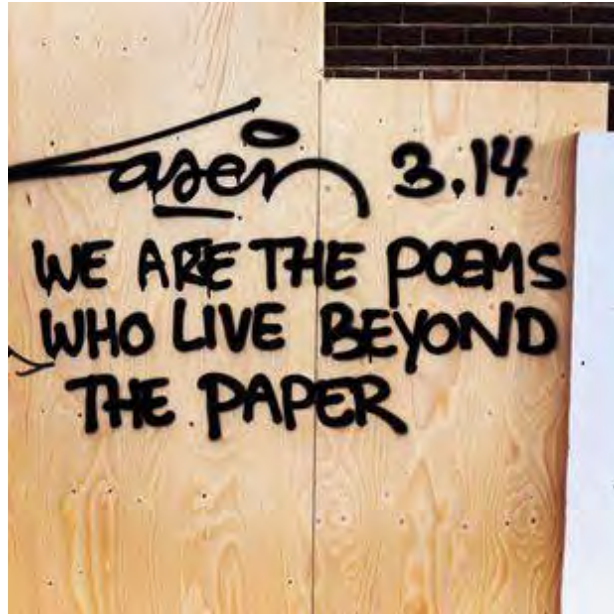 Laser 3.14
WE ARE THE POEMS
WHO LIVE BEYOND
THE PAPER